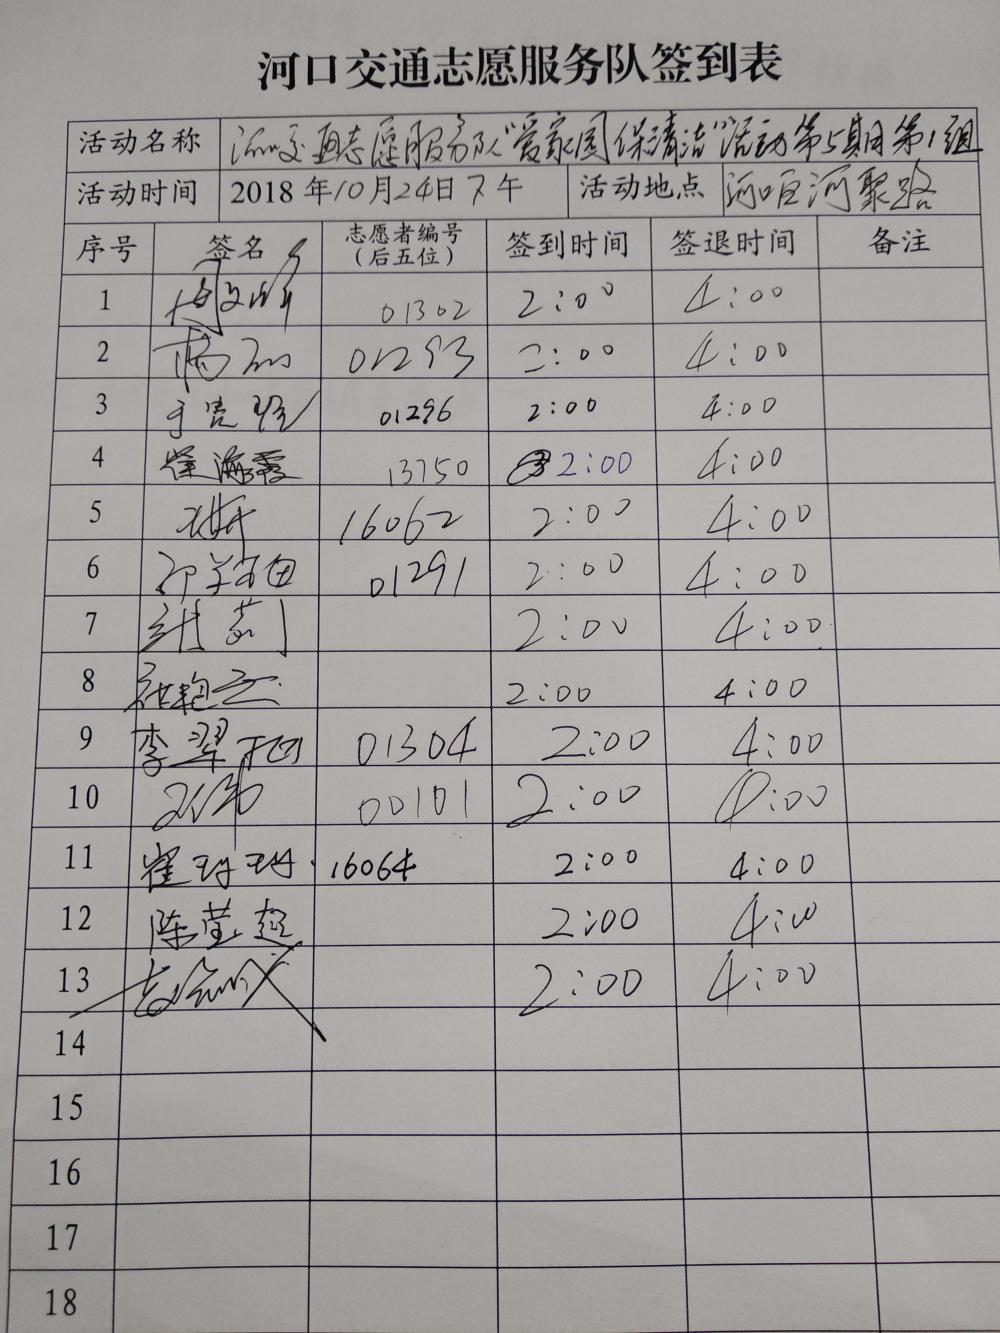 河口交通志愿服务队签到表
活动名称 河口交通志愿服务队"爱家园保清洁"活动第5期第1组
活动时间 2018年10月24日下午 活动地点 河口区河聚路
序号 签名 志愿者编号（后五位） 签到时间 签退时间 备注
1 01302 2:00 4:00
2 01293 2:00 4:00
3 01296 2:00 4:00
4 崔海霞 13750 2:00 4:00
5 16062 2:00 4:00
6 01291 2:00 4:00
7 2:00 4:00
8 2:00 4:00
9 李翠 01304 2:00 4:00
10 00101 2:00 4:00
11 崔珊珊 16064 2:00 4:00
12 陈莹超 2:00 4:00
13 2:00 4:00
14
15
16
17
18